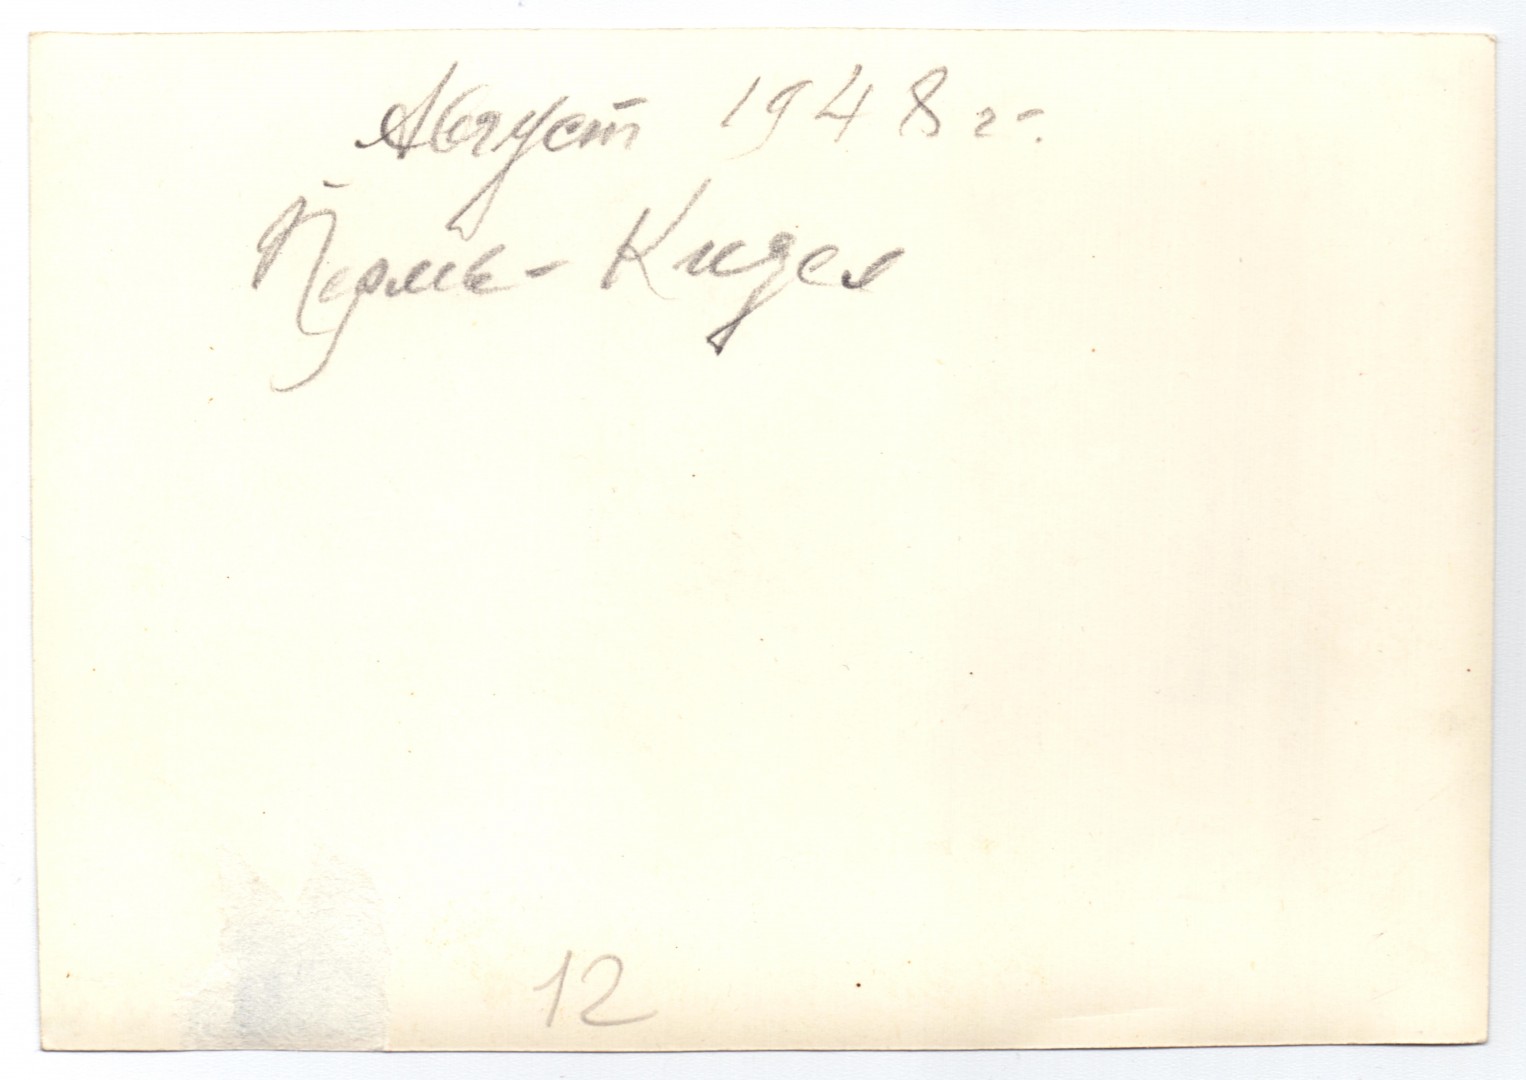 Август 1948 г.
Пермь - Кизел
12